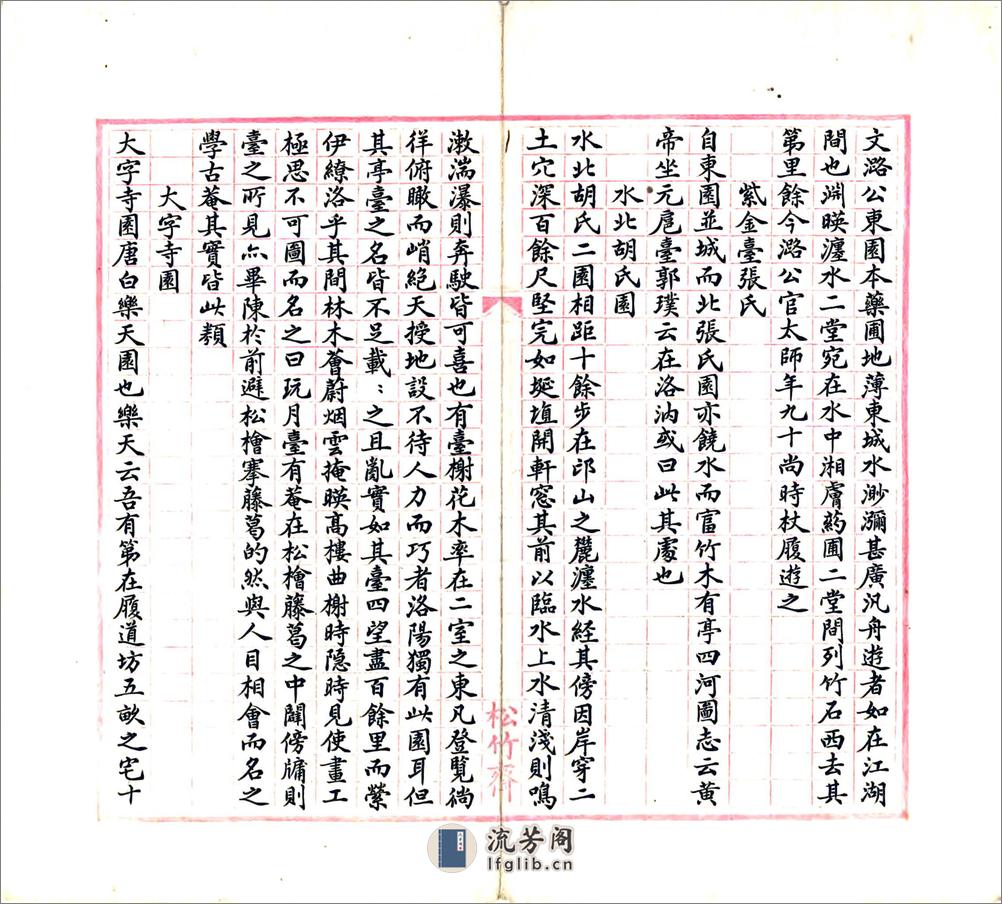 文潞公東園本藥圃地薄東城水渺瀰甚廣汎舟遊者如在江湖
間也淵暎瀍水二堂宛在水中湘膚藥圃二堂間列竹石西去其
第里餘今潞公官太師年九十尚時杖履遊之
紫金臺張氏
自東園並城而北張氏園亦饒水而富竹木有亭四河圖志云黃
帝坐元扈臺郭璞云在洛汭或曰此其處也
水北胡氏園
水北胡氏二園相距十餘步在邙山之麓瀍水經其傍因岸穿二
土穴深百餘尺堅完如埏埴開軒窓其前以臨水上水清淺則鳴
漱湍瀑則奔駛皆可喜也有臺榭花木率在二室之東凡登覽徜
徉俯瞰而峭絕天授地設不待人力而巧者洛陽獨有此園耳但
其亭臺之名皆不足載:之且亂實如其臺四望盡百餘里而縈
伊繚洛乎其間林木薈蔚烟雲掩暎高樓曲榭時隱時見使畫工
極思不可圖而名之曰玩月臺有菴在松檜藤葛之中闢傍牗則
臺之所見亦畢陳於前避松檜搴藤葛的然與人目相會而名之
學古菴其實皆此類
大字寺園
大字寺園唐白樂天園也樂天云吾有第在履道坊五畝之宅十
松竹齋
流芳阁
lfglib.cn